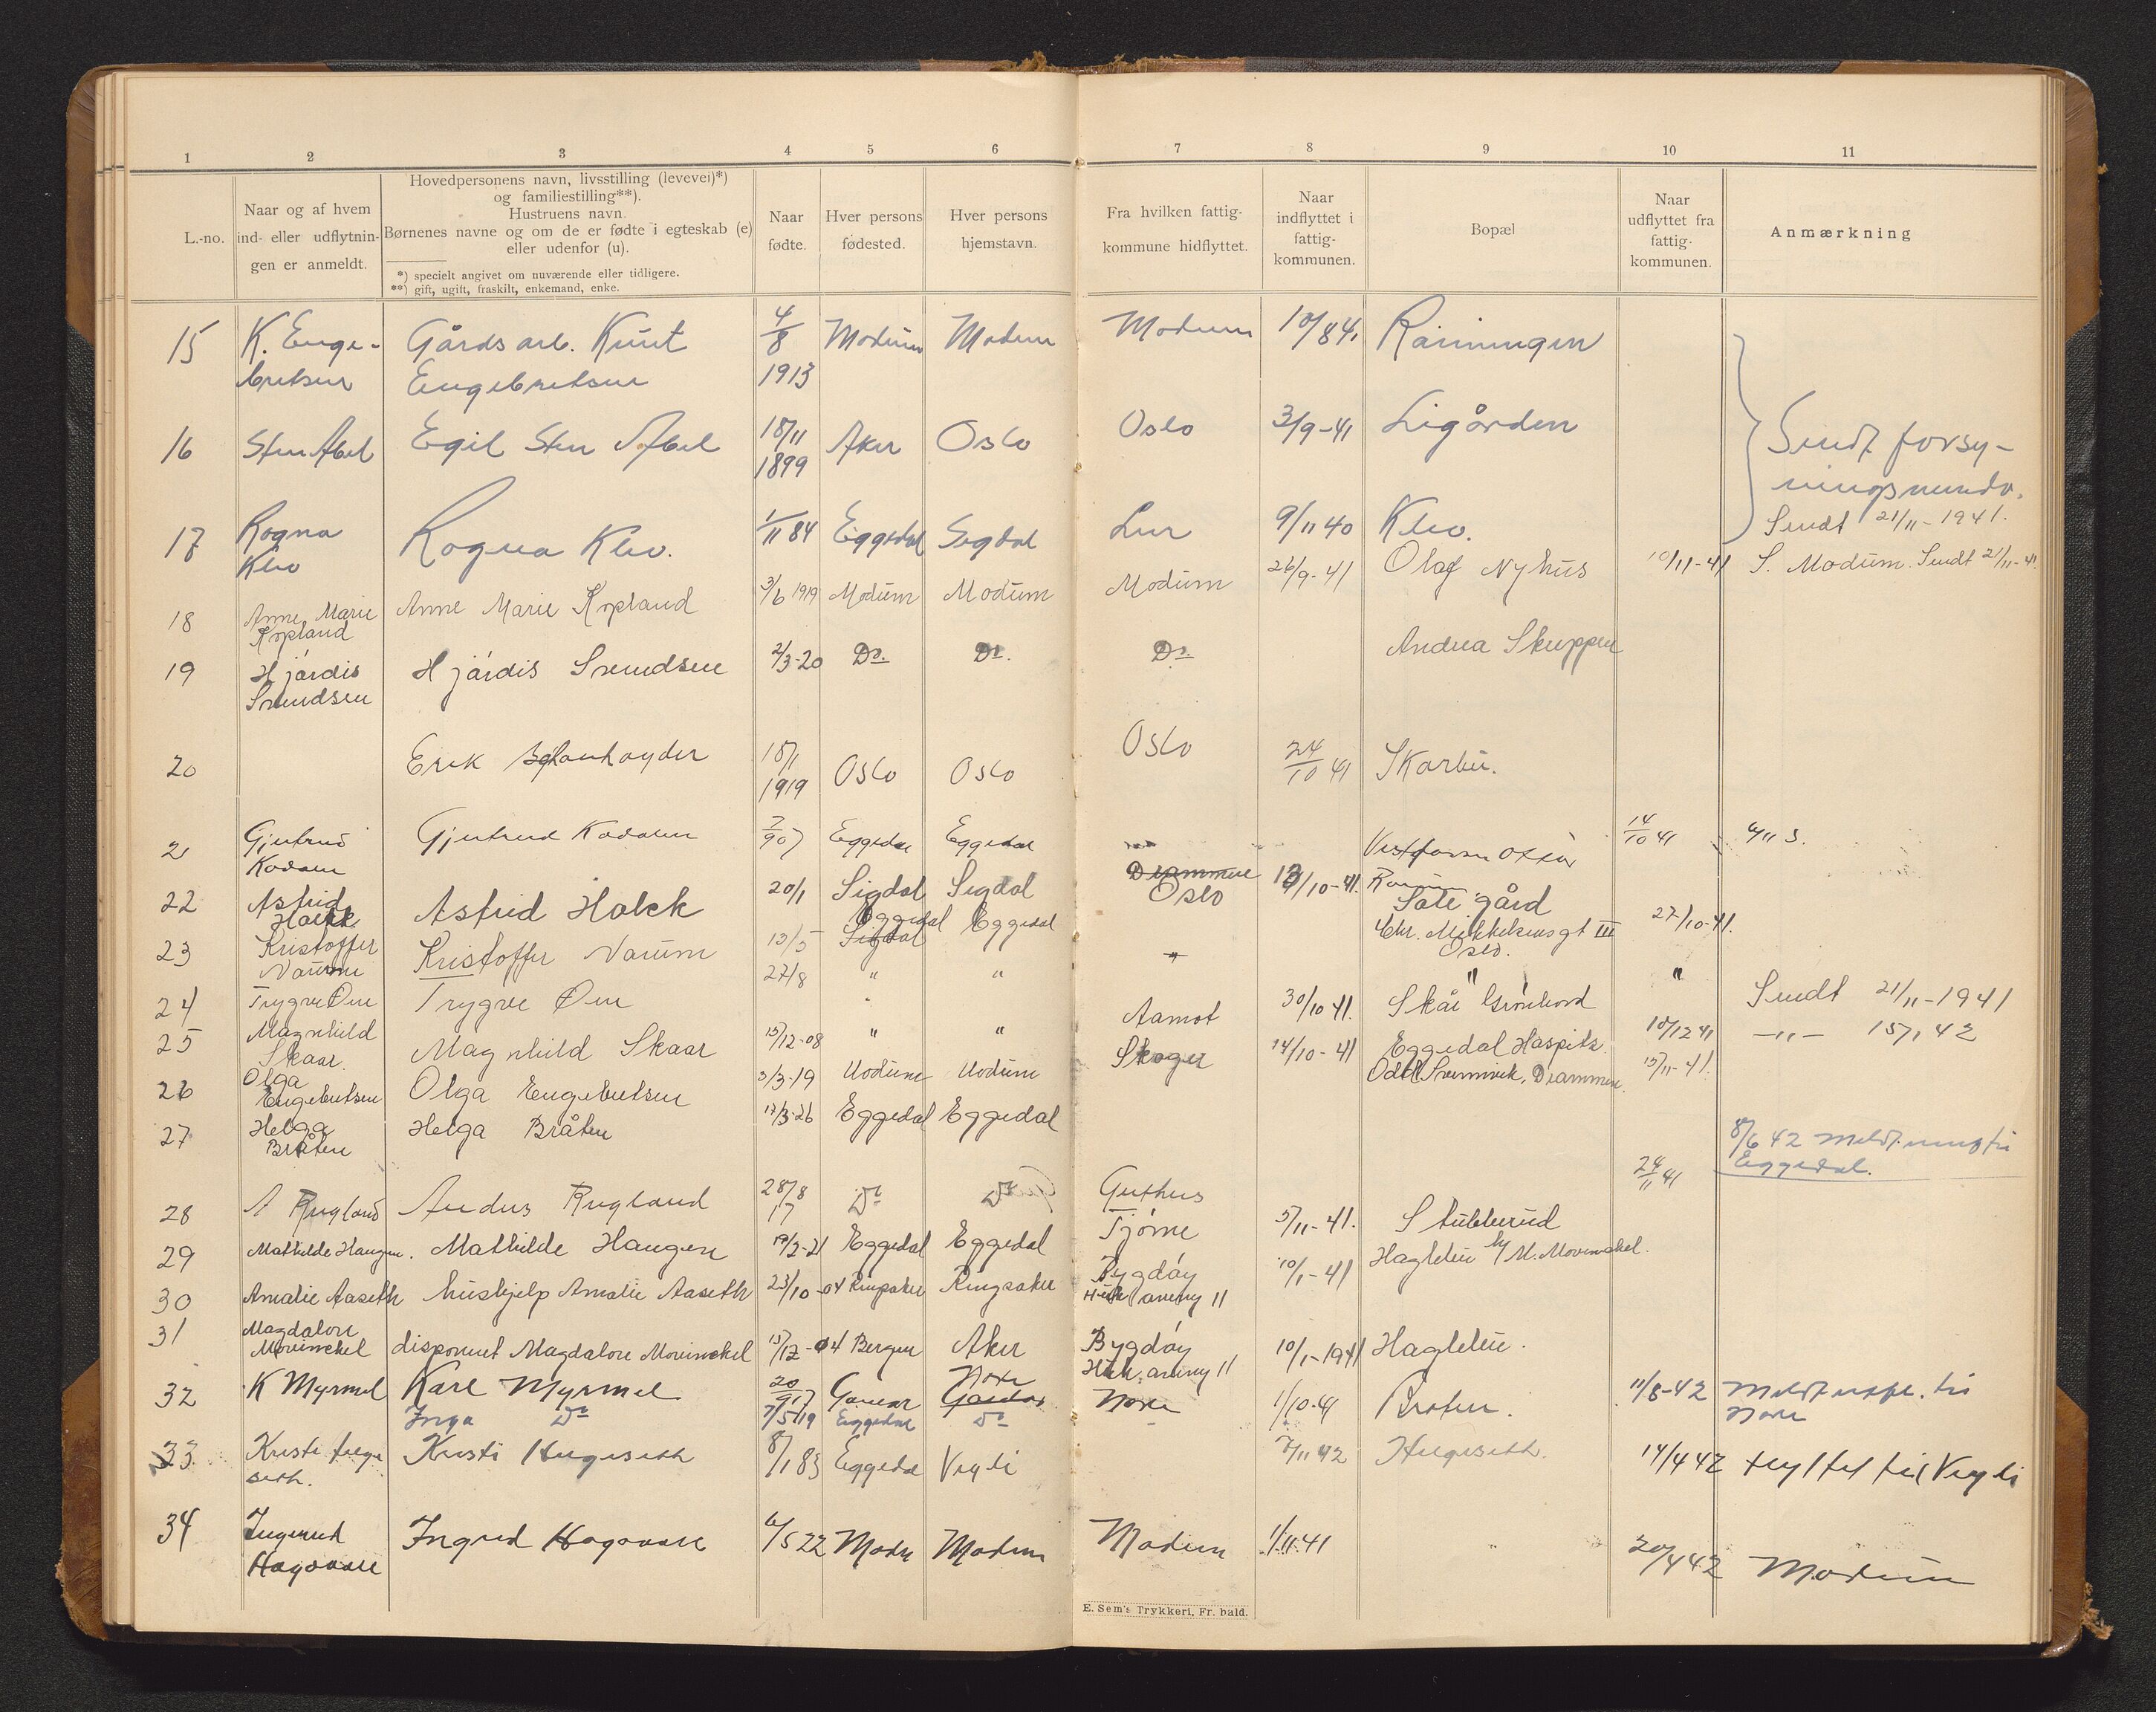 1 2 3 4 5 6 7 8 9 10 11
L.-no.
Naar og af hvem
ind- eller udflytnin-
gen er anmeldt.
Hovedpersonens navn, livsstilling (levevei)*)
og familiestilling**).
Hustruens navn.
Børnenes navne og om de er fødte i egteskab (e)
eller udenfor (u).
*) specielt angivet om nuværende eller tidligere.
**) gift, ugift, fraskilt, enkemand, enke.
Naar
fødte.
Hver persons
fødested.
Hver persons
hjemstavn.
Fra hvilken fattig-
kommune hidflyttet.
Naar
indflyttet i
fattig-
kommunen.
Bopæl
Naar
udflyttet fra
fattig-
kommunen.
Anmærkning
15 K. Enge- Gårdsarb. Knut 4/8 Modum Modum Modum 10/8 41
bretsen Engebretsen 1913
16 Sten Abel Egil Sten Abel 18/11 Aker Oslo Oslo 3/9-41 Ligården Sendt forsy-
1899 ningsnemda.
17 Rogna Rogna Klev. 1/11 84 Eggedal Sigdal Lier 9/11 40 Klev. Sendt 21/11-1941.
Klev
18 Anne Marie Anne Marie Kopland 3/6 1919 Modum Modum Modum 26/9-41 Olaf Nyhus 10/11-41 S. Modum. Sendt 21/11-41.
Kopland
19 Hjördis Hjördis Svendsen 2/3-20 Do. Do. Do. Andrea Skuppen
Svendsen
20 Erik 18/1 Oslo Oslo Oslo 24/10 41 Skarbu.
1919
21 Gjertrud Gjertrud Kodalen Eggedal Eggedal 14/10 41
Kodalen
22 Astrid Astrid Holck 20/1 Sigdal Sigdal Drammen Oslo /10-41. Sole gård
Holck
23 Kristoffer Kristoffer Narum 13/5 Sigdal Eggedal Eggedal " Chr. Mikkelsensgt III 27/10-41.
Narum Oslo.
24 Trygve Øen Trygve Øen 27/8 " " " "
25 Magnhild Magnhild Skaar 15/12-08 " " Aamot 30/10 41. Skåi Grönhovd Sendt 21/11-1941
Skaar.
26 Olga Olga Engebretsen 3/3-19 Modum Modum Skoger 14/10-41 Eggedal Hospits 10/12 41 -"- 15/1 42
Engebretsen Odd Svennvik, Drammen. 13/11-41.
27 Helga Helga Bråten 17/3-26 Eggedal Eggedal
Bråten 8/6 42
Eggedal.
28 A Rugland Anders Rugland 28/8 Do Do 24/11 41
17
29 Mathilde Haugen. Mathilde Haugen 19/2-21 Eggedal Eggedal Tjöme 5/11-41. Stubberud
30 Amalie Aaseth hushjelp Amalie Aaseth 23/10-04 Ringsaker Ringsaker Bygdöy 10/1-41 Haglebu b/ M. Movinckel.
31 Magdalone disponent Magdalone Movinckel 15/12-04 Bergen Aker Bygdöy 10/1-1941 Haglebu.
Movinckel
32 K Myrmel Karl Myrmel 20/9 17 Nore Nore 1/10-41 Braten. 11/8-42 Meldt utfl. til
Inga Do 7/5 19 Eggedal Do Nore
33 Kristi Kristi Hugeseth 8/1 83 Eggedal Vegli 7/11 42 Hugeseth. 14/4 42 flyttet til Vegli
seth.
34 Ingerid Ingrid 6/5 22 Modum Modum Modum 1/11 41 " 20/4 42 Modum
E. Sem's Trykkeri, Fr. hald.